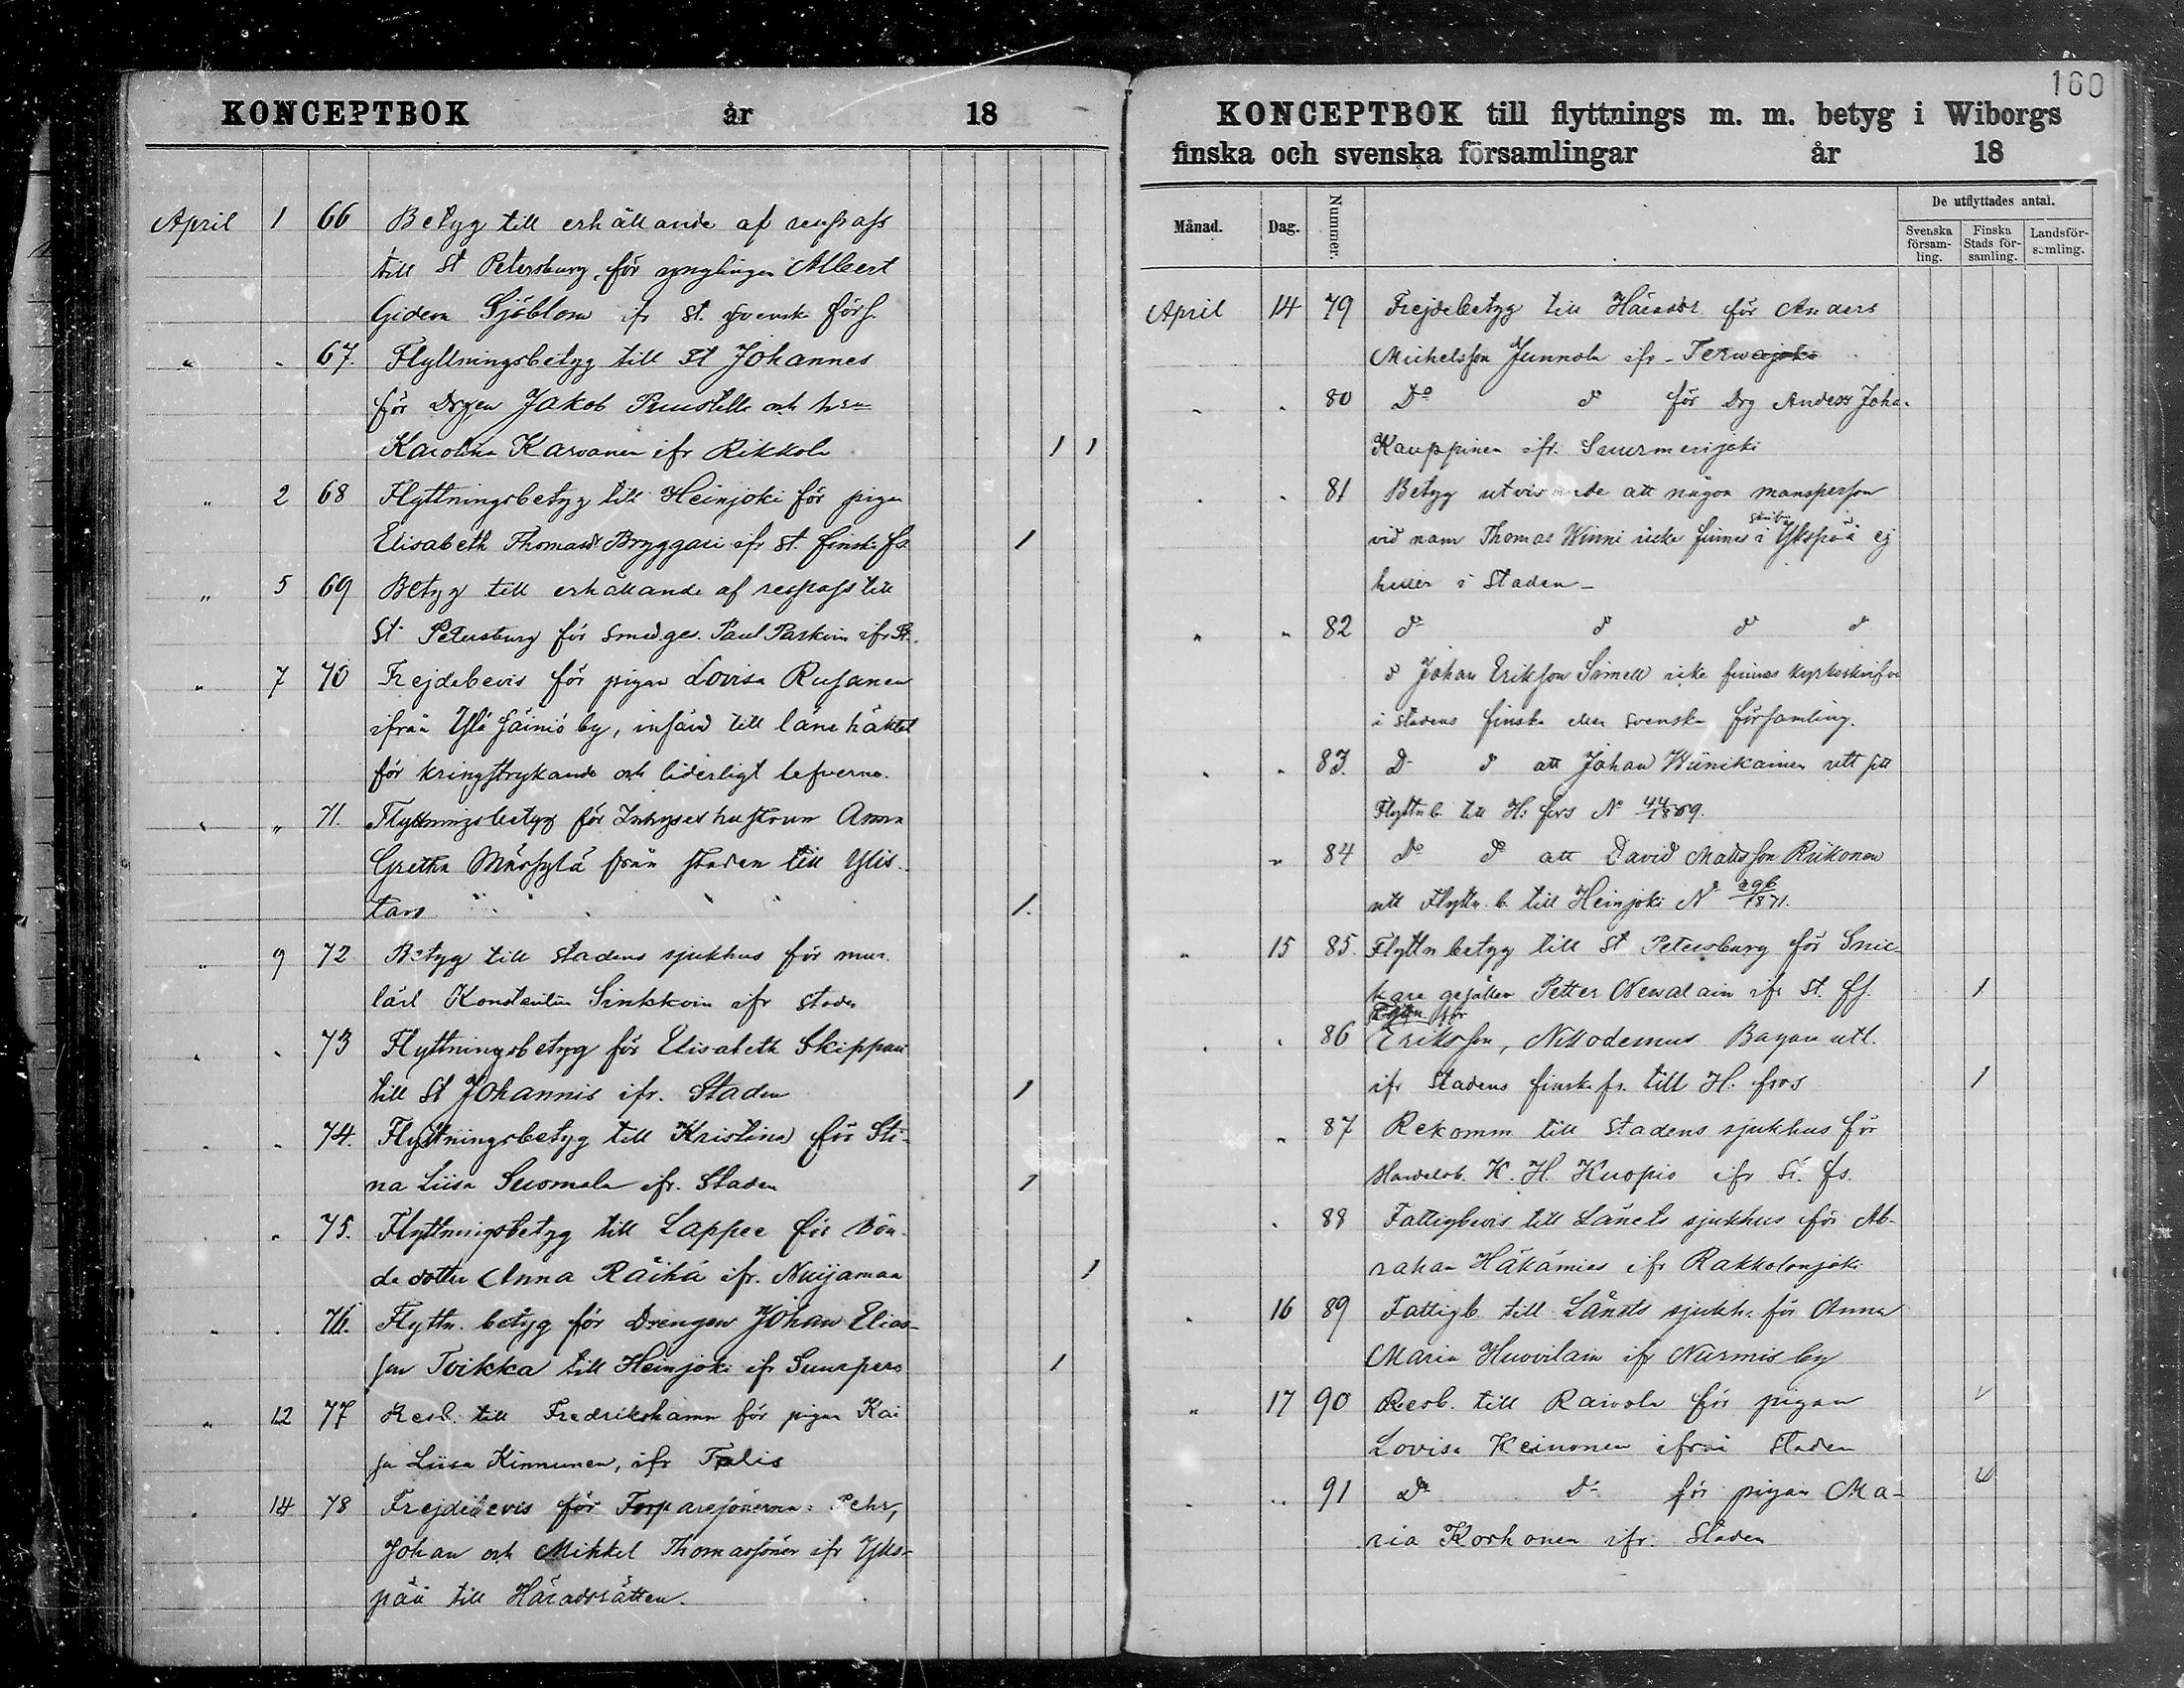 KONCEPTBOK år 18
April 1 66 Betyg till erhållande af respass
till St Petersburg, för ynglingen Albert
Gideon Sjöblom ifr St. svenska förs
" " 67. Flyttningsbetyg till St Johannes
för Drgen Jakob Puustelli och hru
Karolina Karvanen ifr Rikkola 1 1
" 2 68 Flyttningsbetyg till Heinjoki för pigan
Elisabeth Thomasdr Bryggari ifr St. finska fs. 1
" 5 69 Betyg till erhållande af respass till
St Petersburg för smedges. Paul Parkoin ifr St.
" 7 70 Frejdebevis för pigan Lovisa Rusanen
ifrån Ylä Säiniö by, införd till läns häktet
för kringstrykande och liderligt lefverne.
" " 71. Flyttningsbetyg för Inhyses hustrun Anna
Gretha från staden till Ylis-
taro 1.
" 9 72 Betyg till stadens sjukhus för mur-
lärl Konstantin Sinkkoin ifr staden
" " 73 Flyttningsbetyg för Elisabeth Skippari
till St Johannis ifr. Staden 1
" " 74. Flyttningsbetyg till Kristina för Sti-
na Liisa Suomala ifr. Staden 1
" 75. Flyttningsbetyg till Lappee för Bon-
de dotter Anna Räihä ifr. Nuijamaa 1
" " 76. Flyttn. betyg för Drengen Johan Elias-
son Toikka till Heinjoki ifr Suurpero 1
" 12 77 Resb. till Fredrikshamn för pigan Kai
sa Liisa Kinnunen, ifr Talis
" 14 78 Frejdebevis för Torparesönerna: Pehr,
Johan och Mikkel Thomassöner ifr Yks-
pää till Häradsrätten.
160
KONCEPTBOK till flyttnings m. m. betyg i Wiborgs
finska och svenska församlingar år 18
Månad. Dag. Nummer. De utflyttades antal.
Svenska försam-ling. Finska Stads för-samling. Landsför-samling.
April 14 79 Frejdebetyg till Häradsr. för Anders
Michelsson Junnola ifr. Terwajoki
" " 80 Do do för Drg Anders Joha.
Kauppinen ifr. Suurmerijoki
" " 81 Betyg utvisande att någon mansperson
vid namn Thomas Winni icke finnes i Ykspää ej
heller i Staden
" " 82 do do do do
do Johan Eriksson Simell icke finnes kyrkoskrifven
i stadens finska eller svenska församling.
" " 83. Do do att Johan Wiinikainen utt sitt
Flyttn b. till H: fors No 44/1869.
" 84 Do do att David Matsson Riikonen
utt Flyttn. b. till Heinjoki No 296/1871.
" 15 85. Flyttn betyg till St Petersburg för Snic-
kare gesällen Petter Newalain ifr St. fs. 1
Flyttn för
" " 86 Eriksson, Nikodemus Bagare utl.
ifr Stadens finska fs. till H: fors 1
" 87 Rekomm. till Stadens sjukhus för
Handelsb. K. H. Kuopio ifr St. fs.
" 88 Fattigbevis till Länets sjukhus för Ab-
raham Häkämies ifr Rakkolanjoki
" 16 89 Fattigb. till Länets sjukh: för Anna
Maria Huovilain ifr Nurmis by
" 17 90 Resb. till Raivola för pigan
Lovisa Keinonen ifrån Staden
" " 91 Do Do för pigan Ma-
ria Korhonen ifr. Staden